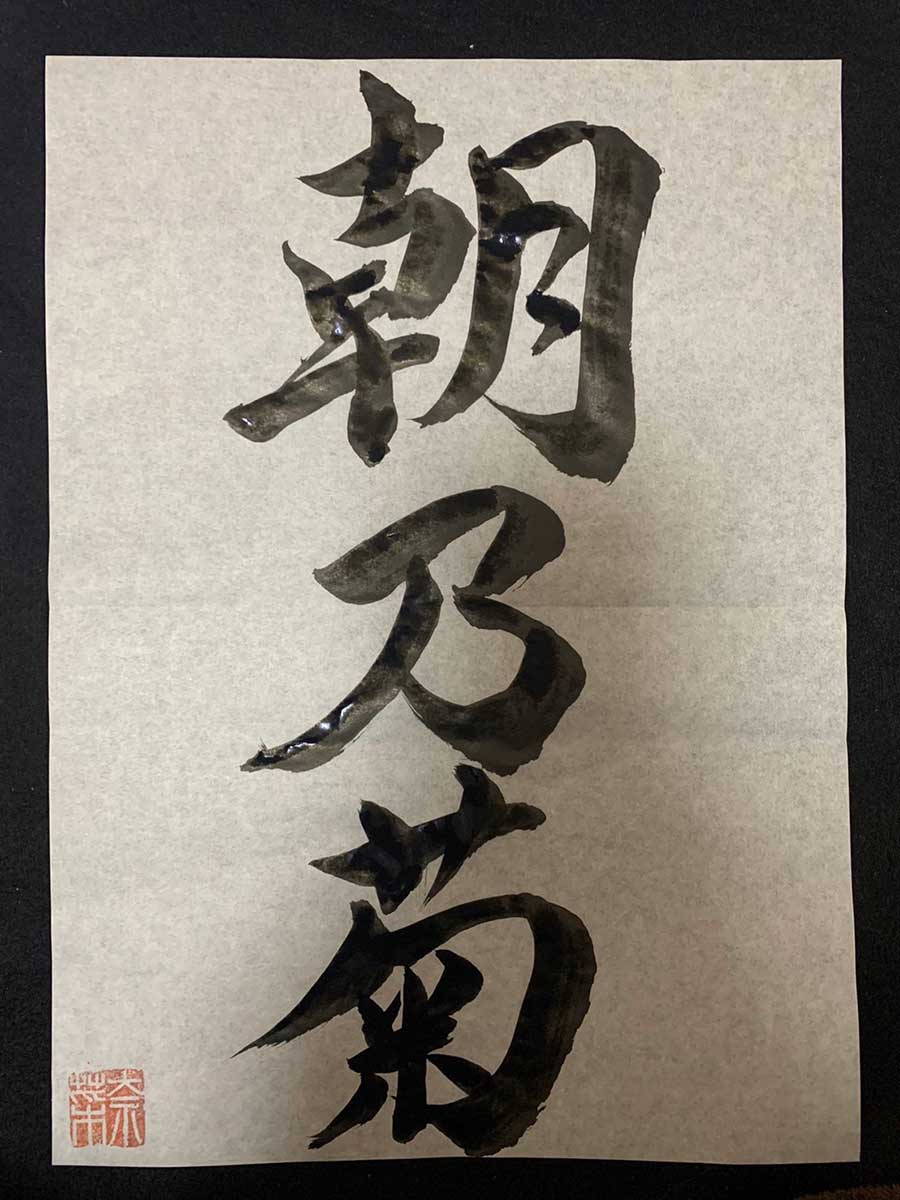 朝乃菊